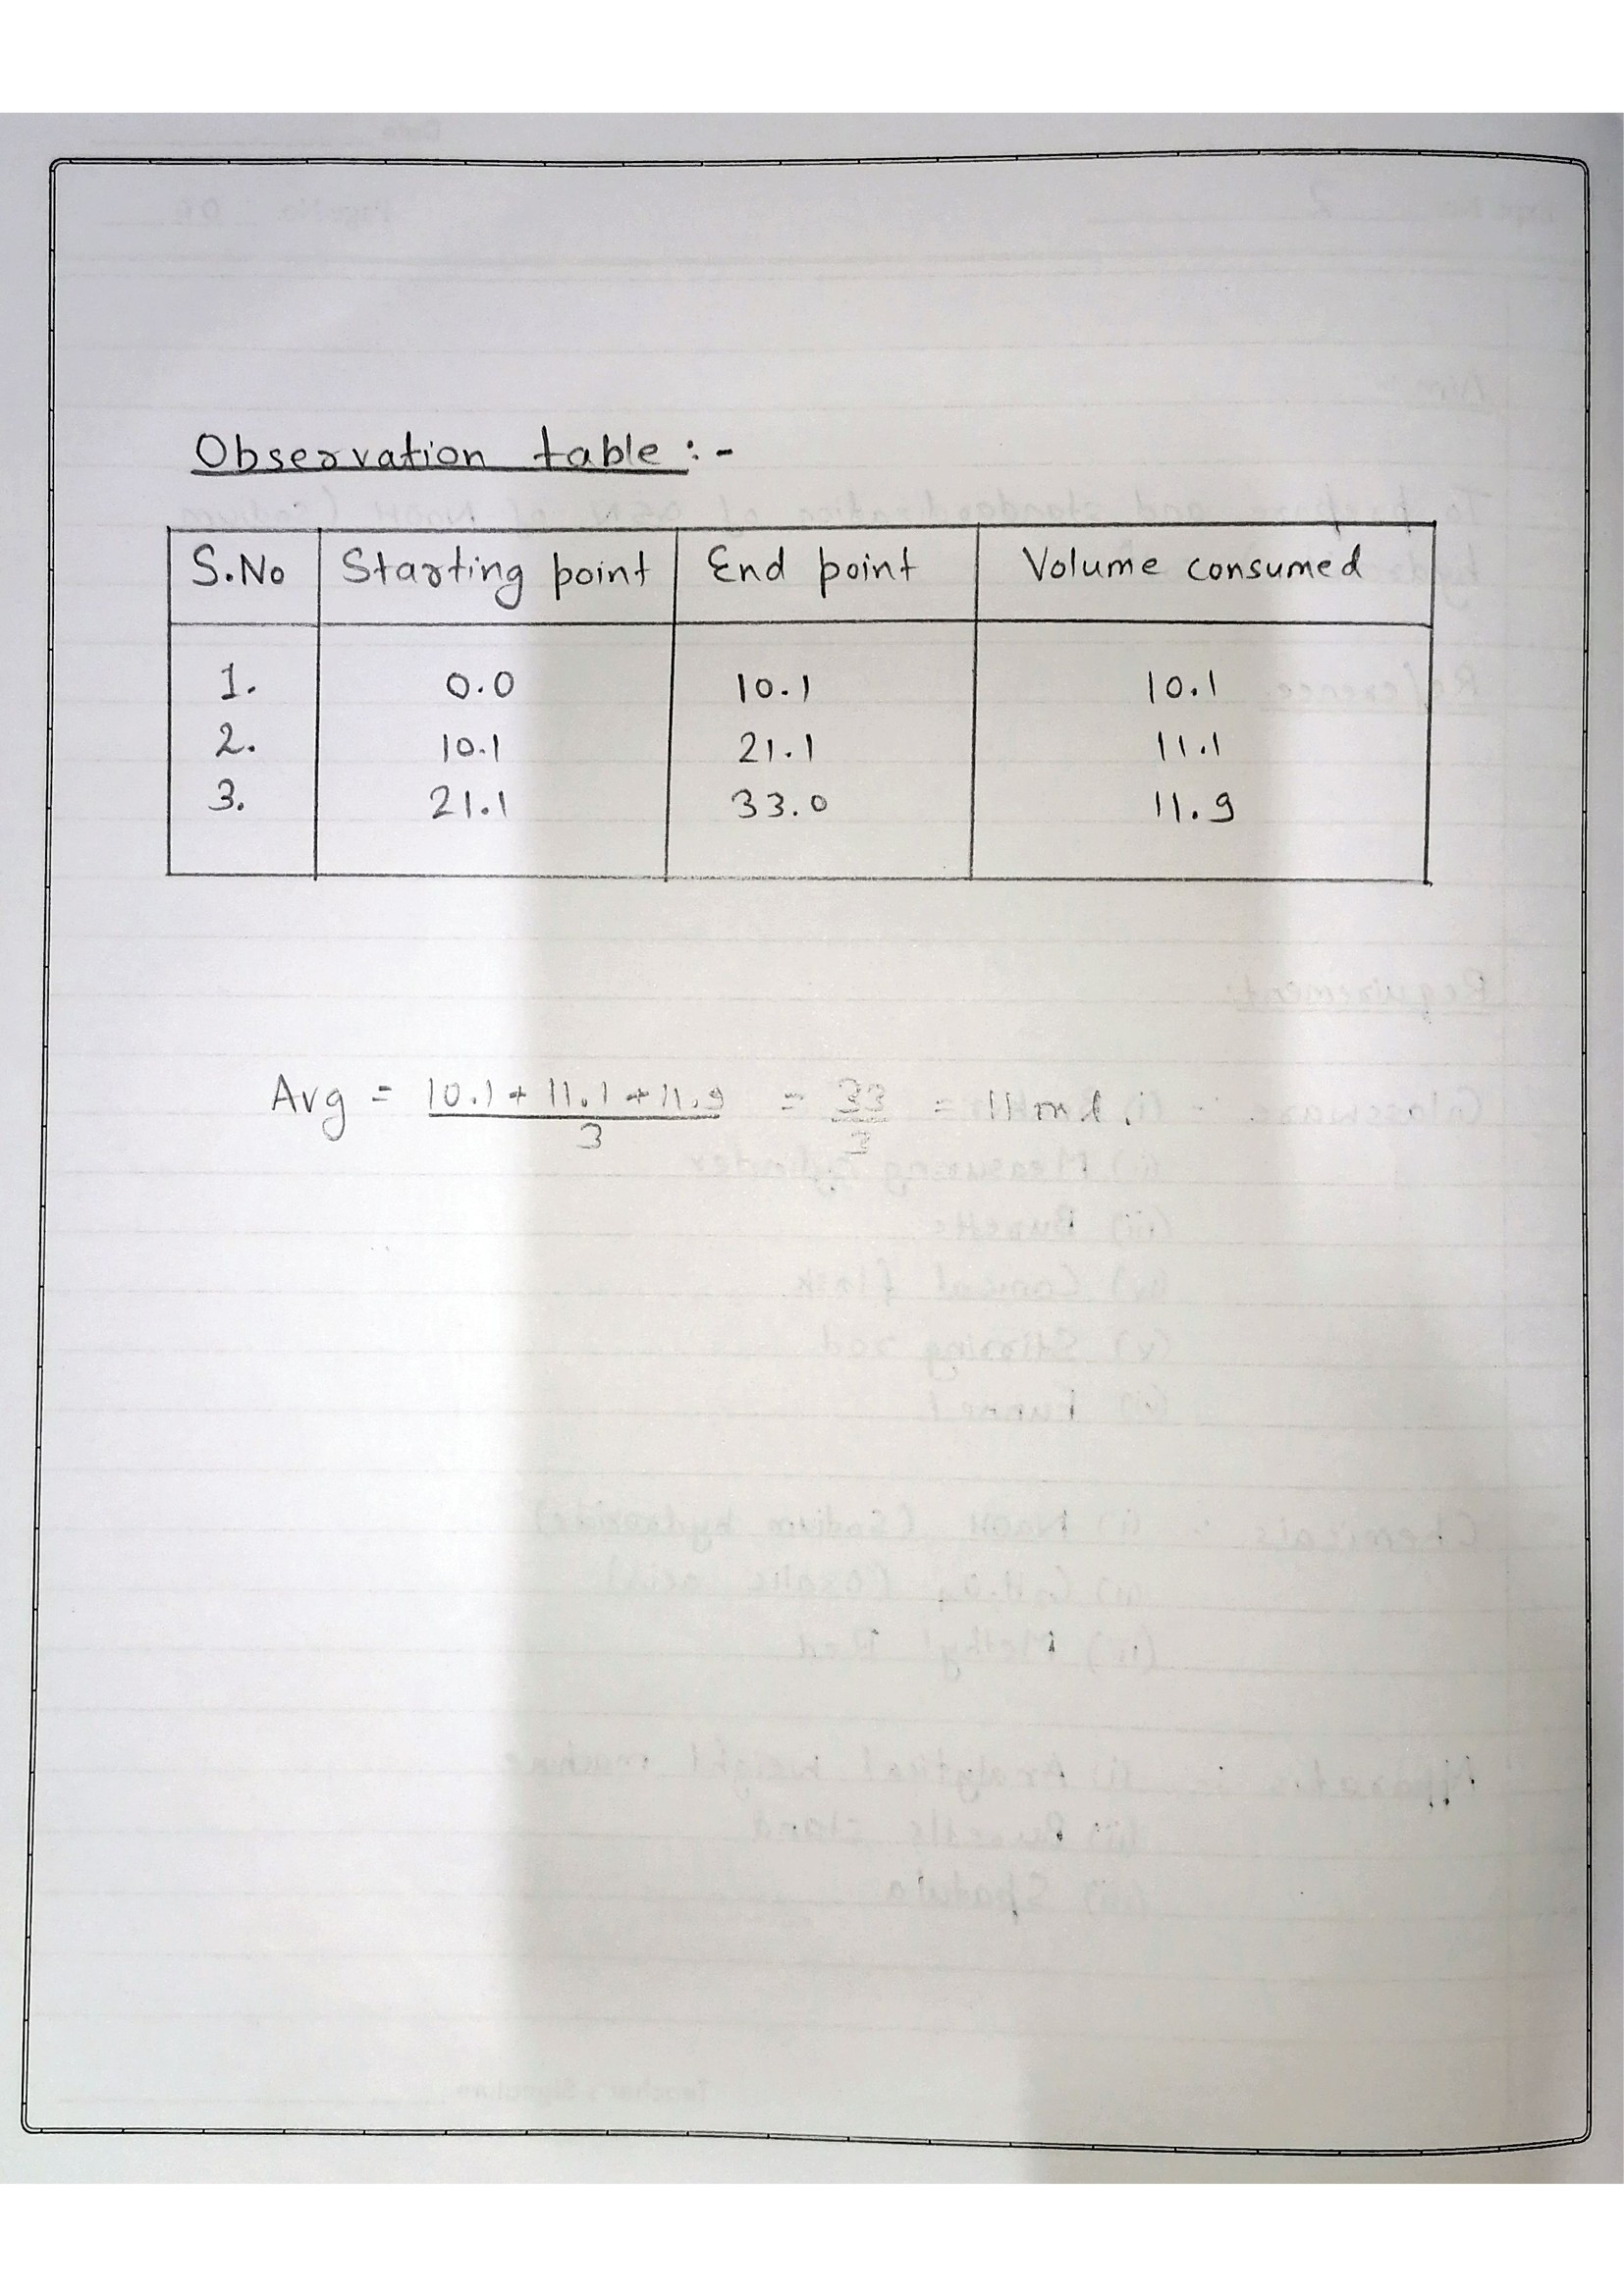 Observation table :-
S.No Starting point End point Volume consumed
1. 0.0 10.1 10.1
2. 10.1 21.1 11.1
3. 21.1 33.0 11.9
Avg = 10.1 + 11.1 + 11.9 / 3 = 33 / 3 = 11 ml.